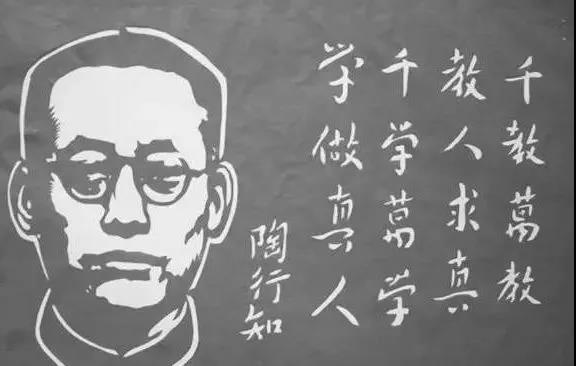 千教萬教
教人求真
千学萬学
学做真人
陶行知